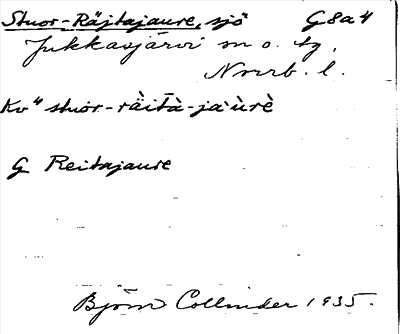 Stuor-Räjtajaure, sjö G8a4
Jukkasjärvi sn o. tg,
Nrrb. l.
Kv4 stuor-ràità-ja'ùrè
G Reitajaure
Björn Collinder 1935.